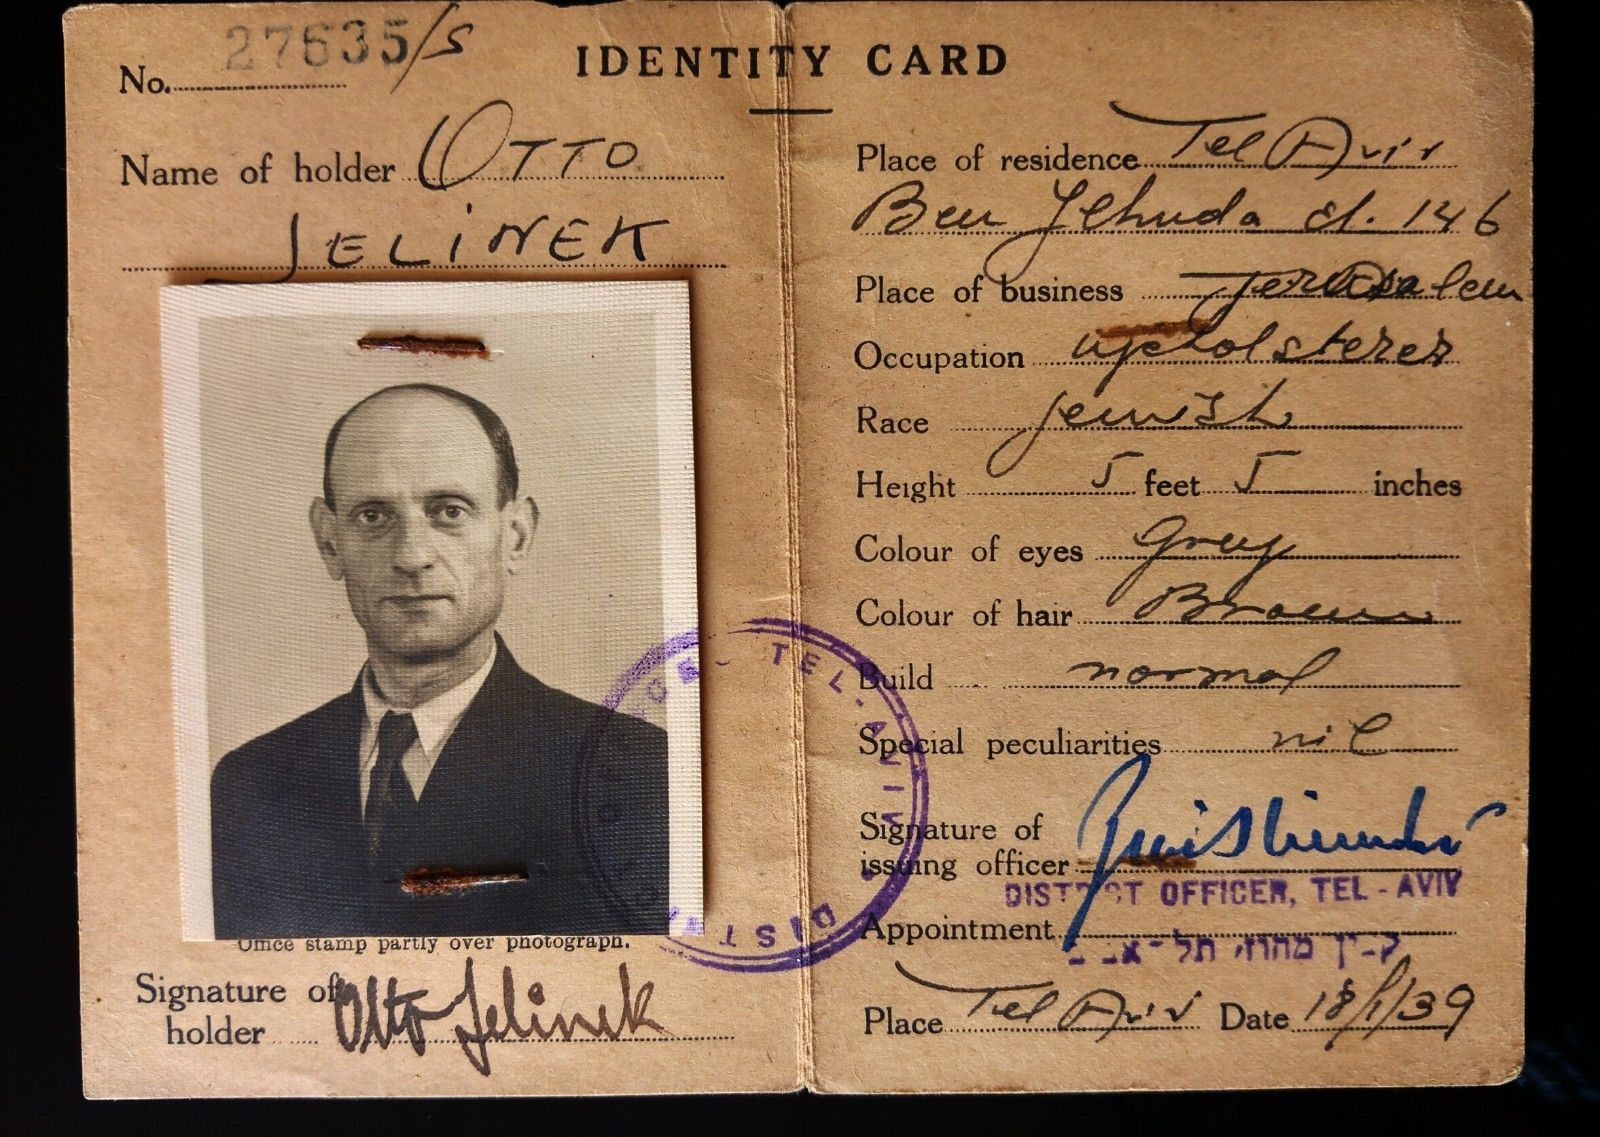 No. 27635/S
IDENTITY CARD
Name of holder OTTO
JELINEK
Office stamp partly over photograph.
Signature of
holder Otto Jelinek
Place of residence Tel Aviv
Ben Jehuda st. 146
Place of business Jerusalem
Occupation upholsterer
Race jewish
Height 5 feet 5 inches
Colour of eyes Grey
Colour of hair Brown
Build normal
Special peculiarities nil
Signature of
issuing officer
DISTRICT OFFICER, TEL-AVIV
Appointment
קצין מחוז, תל-אביב
Place Tel Aviv Date 18/1/39
DISTRICT TEL-AVIV